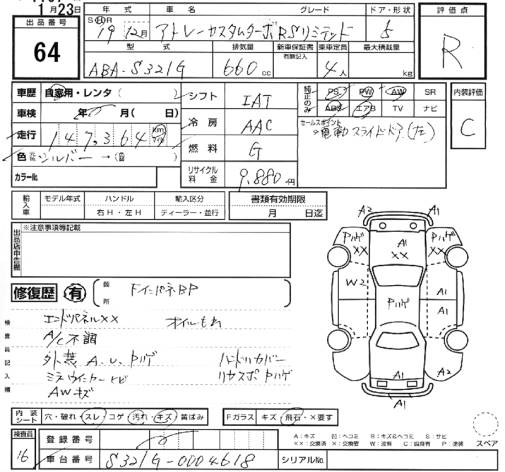 1月23日
出品番号
64
年式 車名 グレード ドア・形状
S H R 19年12月 アトレーカスタムターボRSリミテッド 5
型式 排気量 新車保証書 有無記入 乗車定員 最大積載量
ABA-S321G 660cc 4人 kg
評価点
R
車歴 自家用・レンタ( )
車検 年 月( 日)
走行 147,364 km
色 元色 シルバー→(色 )
カラー№
シフト IAT
冷房 AAC
燃料 G
リサイクル料金 9,880円
純正のみ
PS PW AW SR
ABS エアB TV ナビ
セールスポイント
電動スライドドア(左)
内装評価
C
輸入車 モデル年式 ハンドル 輸入区分
年 右H・左H ディーラー・並行
書類有効期限
月 日迄
出品店申告欄
※注意事項等記載
修復歴 有 箇所 ドインパネBP
検査員記入欄
エンドパネルXX オイルもれ
A/C不調
外装 A.U.ハゲ バードルカバー
ミラーウインカートビ リヤスポハゲ
AWキズ
A2 A1
ハゲ XX A1 XX ハゲ XX
W2 ハゲ A1
A1
A1
A1
内装シート 穴・破れ・スレ・コゲ・汚れ・キズ・黄ばみ
Fガラス キズ・飛石・X要す
A:キズ 凹:ヘコミ B:キズ&ヘコミ S:サビ
XX:交換済 X:交換要 W:波有 C:腐食有 P:塗装
スペア
検査員 16
登録番号
車台番号 S321G-0004618 シリアルNo.